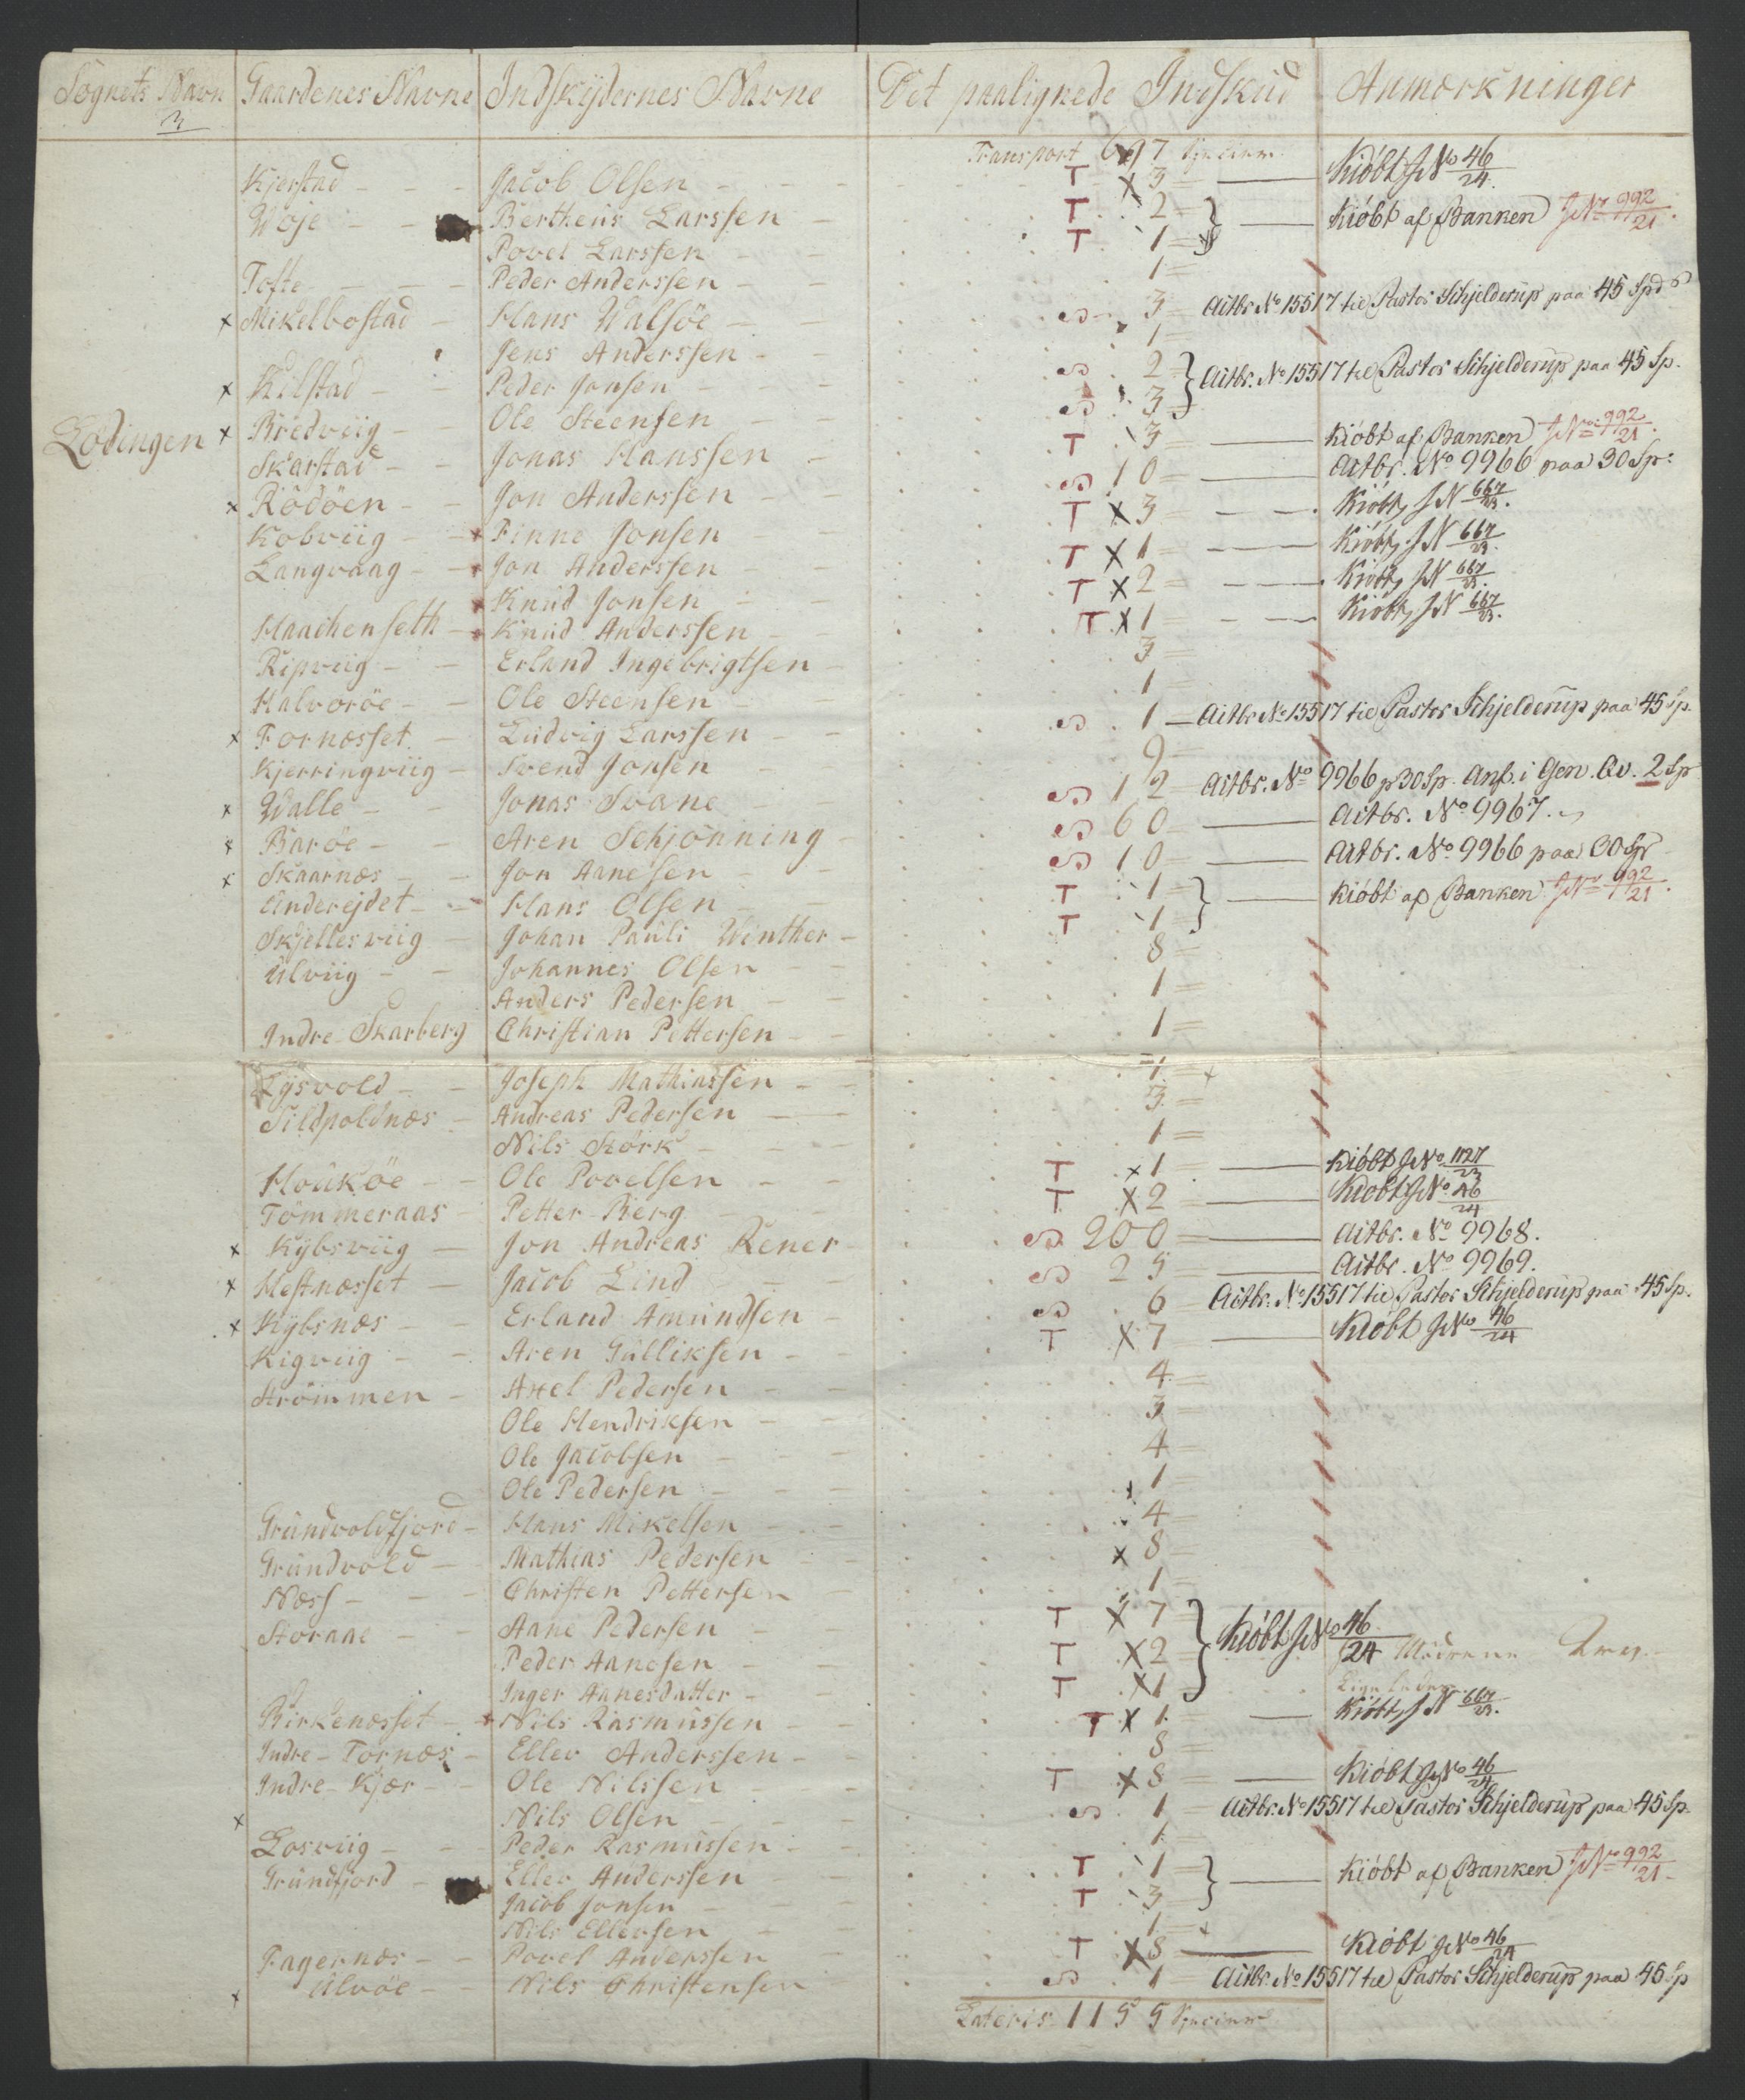 Sognets Navn Gaardenes Navne Indskydernes Navne Det paalignede Indskud Anmærkninger
3
Transport 697 Specier
Kjerstad - - - Jacob Olsen - - T x 3 = — Kiöbt JN 46/24.
Woje - - Bertheus Larssen - T 2 = } — Kiöbt af Banken JNo 992/21.
Povel Larssen - - T 1 =
Tofte - - - Peder Anderssen - - 1 =
x Mikelbostad - Hans Walsöe - - S 3 = Actbr No 15517 til Pastor Schjelderup paa 45 Spd
Jens Anderssen - - 1 =
x Kilstad - - Peder Jonsen - - S 2 = } Actbr. No 15517 til Pastor Schjelderup paa 45 Sp.
x Bredviig - - Ole Steensen - - S 3 =
Lödingen Skarstad - - Jonas Hanssen - T 3 = — Kiöbt af Banken JNo 992/21.
x Rödöen - - Jon Anderssen - - S 10 = — Actbr. No 9966 paa 30 Sp:
Kobviig - - Finne Jonsen - - T x 3 = — Kiöbt JN 667/23.
Langvaag - - Jon Anderssen - - T x 1 = — Kiöbt JN 667/23.
Knud Jonsen - - T x 2 = — Kiöbt JN 667/23.
Haachenseth - Knud Anderssen - - T x 1 = — Kiöbt JN 667/23.
Ripviig - - Erland Ingebrigtsen - 3 =
Halvoröe - - Ole Steensen - - 1 =
x Fornæsset - Ludvig Larssen - - S 1 — Actbr No 15517 til Pastor Schjelderup paa 45 Sp.
Kjerringviig - Svend Jonsen - - 9 =
x Walle - - Jonas Svane - - S 12 Actbr. No 9966 p 30 Sp. Anf. i Gen. Qv. 2 Sp
x Baröe - - Aren Schjönning - S 60 — Actbr. No 9967.
x Skaarnæs - - Jon Aanesen - - S 10 — Actbr. No 9966 paa 30 Sp
Anderejdet - - Hans Olsen - - T 1 = } — Kiöbt af Banken JNo 992/21.
Skjellesviig - Johan Pauli Winther - T 1 =
Ulviig - - Johannes Olsen - - 8 =
Anders Pedersen - - 1 =
Indre Skarberg Christian Pettersen - - 1 =
Lysvold - - Joseph Mathiassen - - 1 = x
Tildpoldnæs - Andreas Pedersen - - 3 =
Nils Störk - - 1 =
Houköe - - Ole Povelsen - - T x 1 = — Kiöbt JNo 1127/23
Tömmeraas - Petter Berg - - T x 2 — Kiöbt JNo 46/24
x Kybsviig - Jon Andreas Rener - S 200 — Actbr. No 9968.
x Hestnæsset - Jacob Lind - - S 25 — Actbr. No 9969.
x Kybsnæs - - Erland Amundsen - S 6 = Actbr. No 15517 til Pastor Schjelderup paa 45 Sp.
Kigviig - - Aren Gulliksen - - T x 7 — Kiöbt JNo 46/24
Strömmen - Axel Pedersen - - 4 =
Ole Hendriksen - - 3 =
Ole Jacobsen - - 4 =
Ole Pedersen - - x 1 =
Grundvoldfjord - Hans Mikelsen - - 4 =
Grundvold - - Mathias Pedersen - - x 8 =
Næss - - - Christen Pettersen - 1 =
Storaae - - Aane Pedersen - - T x 7 } Kiöbt JNo 46/24
Peder Aanesen - - T x 2
Inger Aanesdatter - - T x 1
Birkenæsset - - Nils Rasmussen - - T x 1 — Kiöbt JN 667/23.
Indre - Tornæs - Eller Anderssen - - 8 =
Indre - Kjær - - Ole Nilssen - T x 8 = — Kiöbt JNo 46/24
x Nils Olsen - - S 1 = Actbr. No 15517 til Pastor Schjelderup paa 45 Sp.
Losviig - - - Peder Rasmussen - - 1 =
Grundfjord - Eller Anderssen - - T 1 = } — Kiöbt af Banken JNo 992/21
Jacob Jonsen - - T 3 =
Nils Ellersen - - 1 = x
Fagernæs - - Povel Anderssen - T x 8 — Kiöbt JNo 46/24
x Ulvöe - - Nils Christensen S 1 = Actbr. No 15517 til Pastor Schjelderup paa 45 Sp
Lateris 1155 Specier